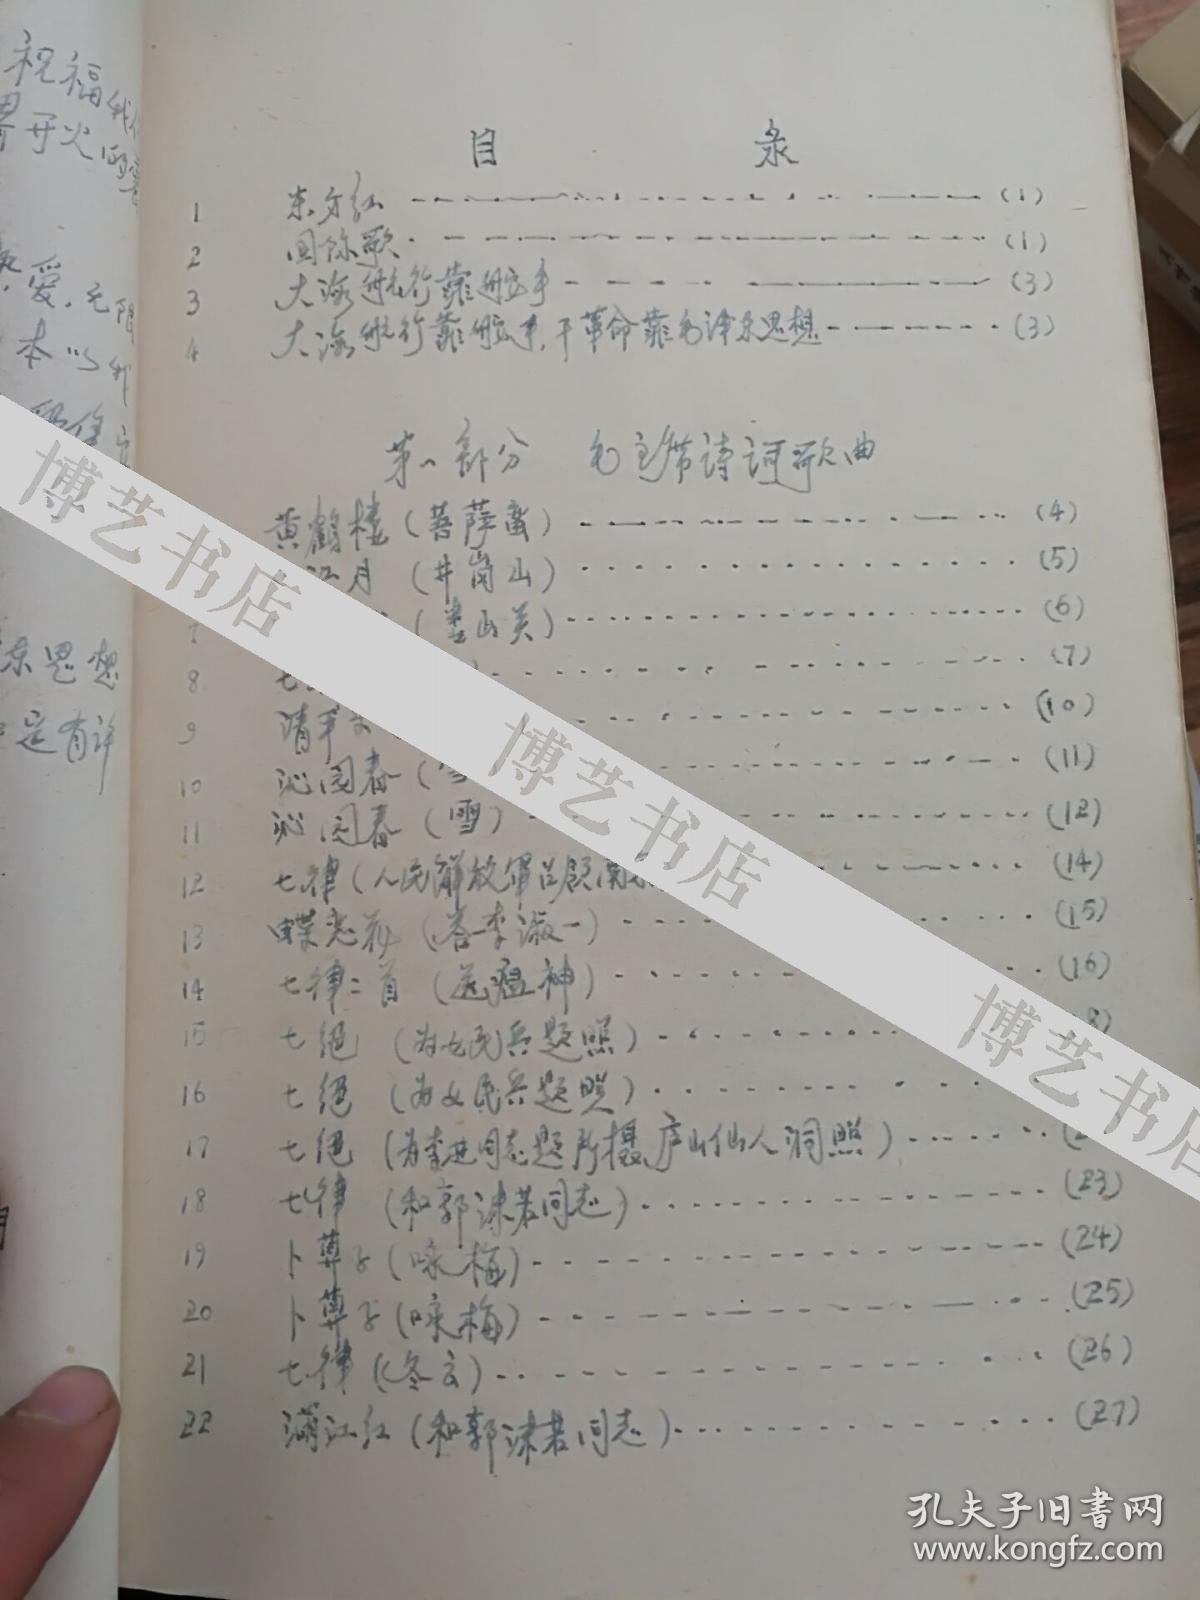 祝福我
开火
爱.无限
本
东思想
是有许
目 录
1 东方红 (1)
2 国际歌 (1)
3 大海航行靠舵手 (3)
4 大海航行靠舵手,干革命靠毛泽东思想 (3)
第一部分 毛主席诗词歌曲
黄鹤楼(菩萨蛮) (4)
江月(井岗山) (5)
7 (娄山关) (6)
8 七 (7)
9 清平 (10)
10 沁园春(雪 (11)
11 沁园春(雪) (12)
12 七律(人民解放军占领南京 (14)
13 蝶恋花(答李淑一) (15)
14 七律二首(送瘟神) (16)
15 七绝(为女民兵题照) 18)
16 七绝(为女民兵题照)
17 七绝(为李进同志题所摄庐山仙人洞照) (2
18 七律(和郭沫若同志) (23)
19 卜算子(咏梅) (24)
20 卜算子(咏梅) (25)
21 七律(冬云) (26)
22 满江红(和郭沫若同志) (27)
博艺书店
博艺书店
博艺书店
孔夫子旧书网
www.kongfz.com